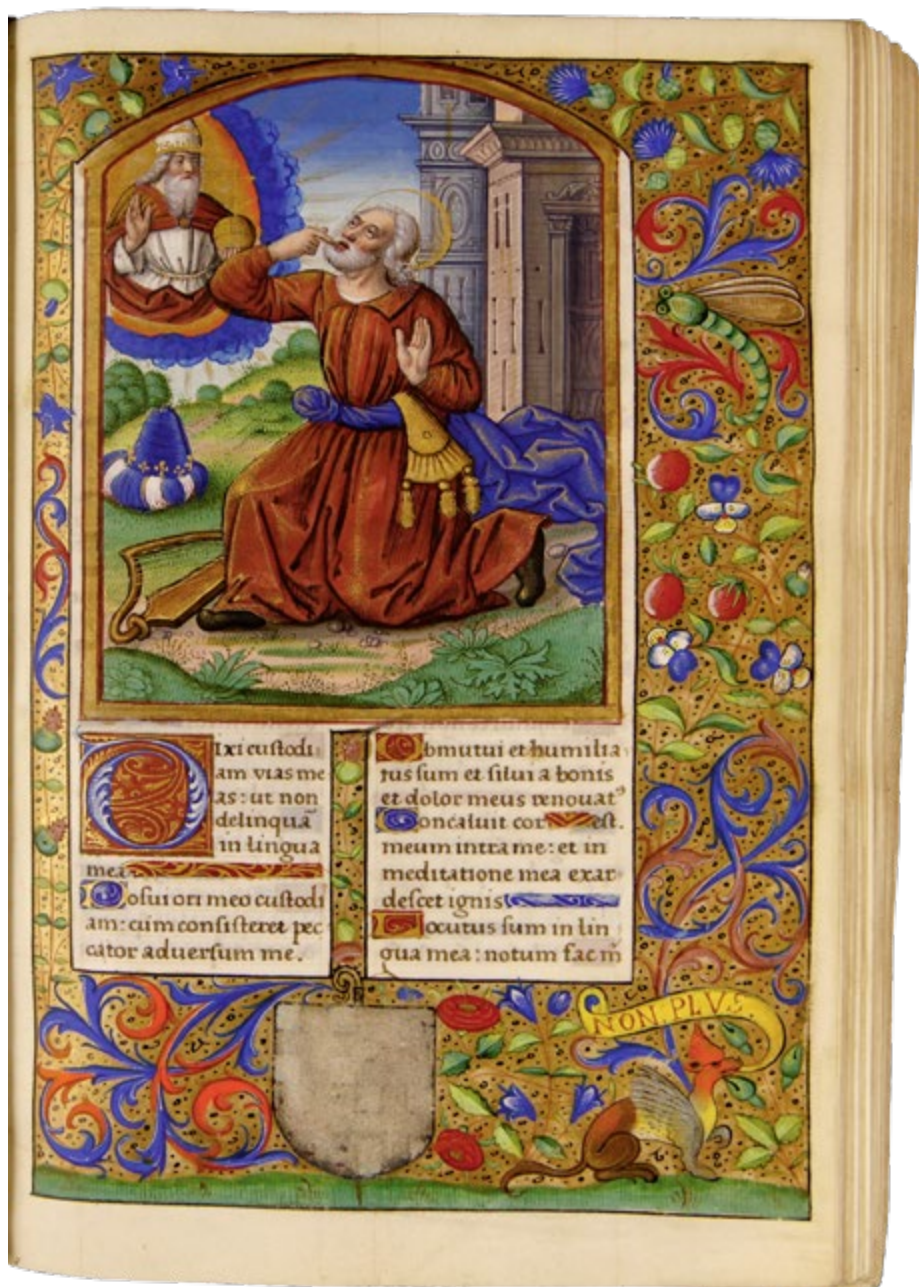 Dixi custodi
am vias me
as: ut non
delinquã
in lingua
mea
Posui ori meo custodi
am: cum consisteret pec
cator adversum me.
Obmutui et humilia
tus sum et silui a bonis
et dolor meus renouatꝰ
Concaluit cor est.
meum intra me: et in
meditatione mea exar
descet ignis
Locutus sum in lin
gua mea: notum fac m̃
NON. PLVS